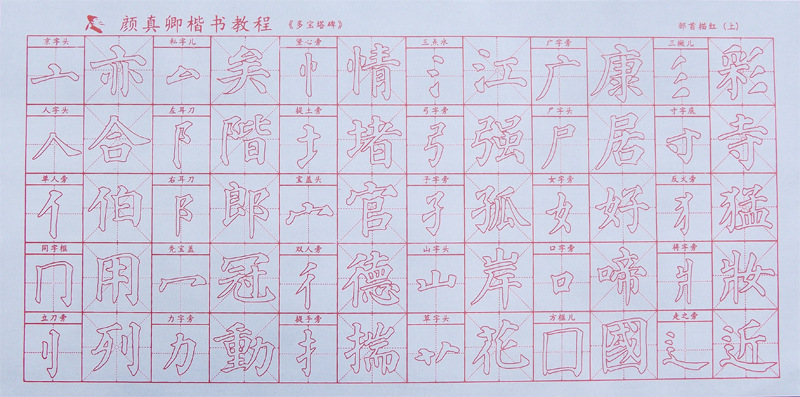 颜真卿楷书教程 《多宝塔碑》 部首描红（上）
京字头 私字儿 竖心旁 三点水 广字旁 三撇儿
亠 亦 厶 矣 忄 情 氵 江 广 康 彡 彩
人字头 左耳刀 提土旁 弓字旁 尸字头 寸字底
人 合 阝 階 土 堵 弓 强 尸 居 寸 寺
单人旁 右耳刀 宝盖头 子字旁 女字旁 反犬旁
亻 伯 阝 郎 宀 官 孑 孤 女 好 犭 猛
同字框 秃宝盖 双人旁 山字头 口字旁 将字旁
冂 用 冖 冠 彳 德 山 岸 口 啼 爿 妝
立刀旁 力字旁 提手旁 草字头 方框儿 走之旁
刂 列 力 動 扌 揣 艹 花 囗 國 辶 近